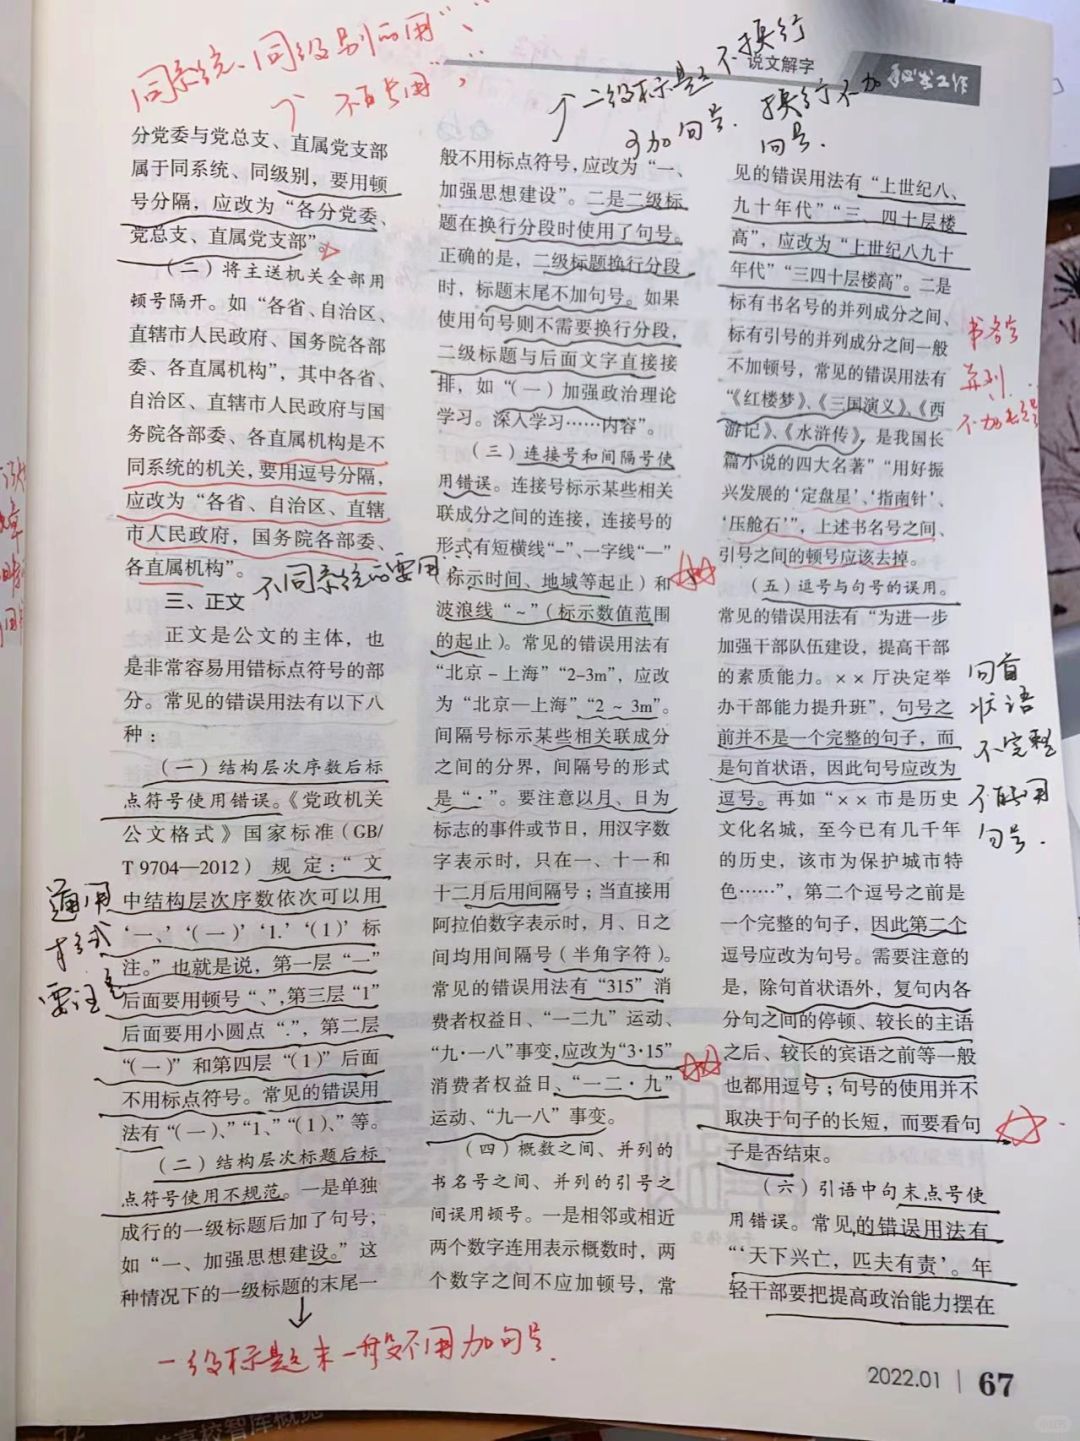 同系统、同级别的用“、”
个 不自点用“，”
个二级标题不换行
可加句号.
换行不加
句号.
说文解字
秘书工作
分党委与党总支、直属党支部
属于同系统、同级别，要用顿
号分隔，应改为“各分党委、
党总支、直属党支部”。
（二）将主送机关全部用
顿号隔开。如“各省、自治区、
直辖市人民政府、国务院各部
委、各直属机构”，其中各省、
自治区、直辖市人民政府与国
务院各部委、各直属机构是不
同系统的机关，要用逗号分隔，
应改为“各省、自治区、直辖
市人民政府，国务院各部委、
各直属机构”。
不同系统的要用，
三、正文
正文是公文的主体，也
是非常容易用错标点符号的部
分。常见的错误用法有以下八
种：
（一）结构层次序数后标
点符号使用错误。《党政机关
公文格式》国家标准（GB/
T 9704—2012）规定：“文
中结构层次序数依次可以用
‘一、’‘（一）’‘1.’‘（1）’标
注。”也就是说，第一层“一”
后面要用顿号“、”，第三层“1”
后面要用小圆点“.”，第二层
“（一）”和第四层“（1）”后面
不用标点符号。常见的错误用
法有“（一）、”“1、”“（1）、”等。
（二）结构层次标题后标
点符号使用不规范。一是单独
成行的一级标题后加了句号，
如“一、加强思想建设。”这
种情况下的一级标题的末尾一
通用
格式
要注意
一级标题末一般不用加句号.
般不用标点符号，应改为“一、
加强思想建设”。二是二级标
题在换行分段时使用了句号。
正确的是，二级标题换行分段
时，标题末尾不加句号。如果
使用句号则不需要换行分段，
二级标题与后面文字直接接
排，如“（一）加强政治理论
学习。深入学习……内容”。
（三）连接号和间隔号使
用错误。连接号标示某些相关
联成分之间的连接，连接号的
形式有短横线“-”、一字线“—”
（标示时间、地域等起止）和
波浪线“～”（标示数值范围
的起止）。常见的错误用法有
“北京－上海”“2-3m”，应改
为“北京—上海”“2～3m”。
间隔号标示某些相关联成分
之间的分界，间隔号的形式
是“·”。要注意以月、日为
标志的事件或节日，用汉字数
字表示时，只在一、十一和
十二月后用间隔号；当直接用
阿拉伯数字表示时，月、日之
间均用间隔号（半角字符）。
常见的错误用法有“315”消
费者权益日、“一二九”运动、
“九·一八”事变，应改为“3·15”
消费者权益日、“一二·九”
运动、“九一八”事变。
（四）概数之间、并列的
书名号之间、并列的引号之
间误用顿号。一是相邻或相近
两个数字连用表示概数时，两
个数字之间不应加顿号，常
见的错误用法有“上世纪八、
九十年代”“三、四十层楼
高”，应改为“上世纪八九十
年代”“三四十层楼高”。二是
标有书名号的并列成分之间、
标有引号的并列成分之间一般
不加顿号，常见的错误用法有
“《红楼梦》、《三国演义》、《西
游记》、《水浒传》，是我国长
篇小说的四大名著”“用好振
兴发展的‘定盘星’、‘指南针’、
‘压舱石’”，上述书名号之间、
引号之间的顿号应该去掉。
（五）逗号与句号的误用。
常见的错误用法有“为进一步
加强干部队伍建设，提高干部
的素质能力。××厅决定举
办干部能力提升班”，句号之
前并不是一个完整的句子，而
是句首状语，因此句号应改为
逗号。再如“××市是历史
文化名城，至今已有几千年
的历史，该市为保护城市特
色……”，第二个逗号之前是
一个完整的句子，因此第二个
逗号应改为句号。需要注意的
是，除句首状语外，复句内各
分句之间的停顿、较长的主语
之后、较长的宾语之前等一般
也都用逗号；句号的使用并不
取决于句子的长短，而要看句
子是否结束。
（六）引语中句末点号使
用错误。常见的错误用法有
“‘天下兴亡，匹夫有责’。年
轻干部要把提高政治能力摆在
书名号
并列
不加顿号
句首
状语
不完整
不能用
句号.
2022.01 | 67